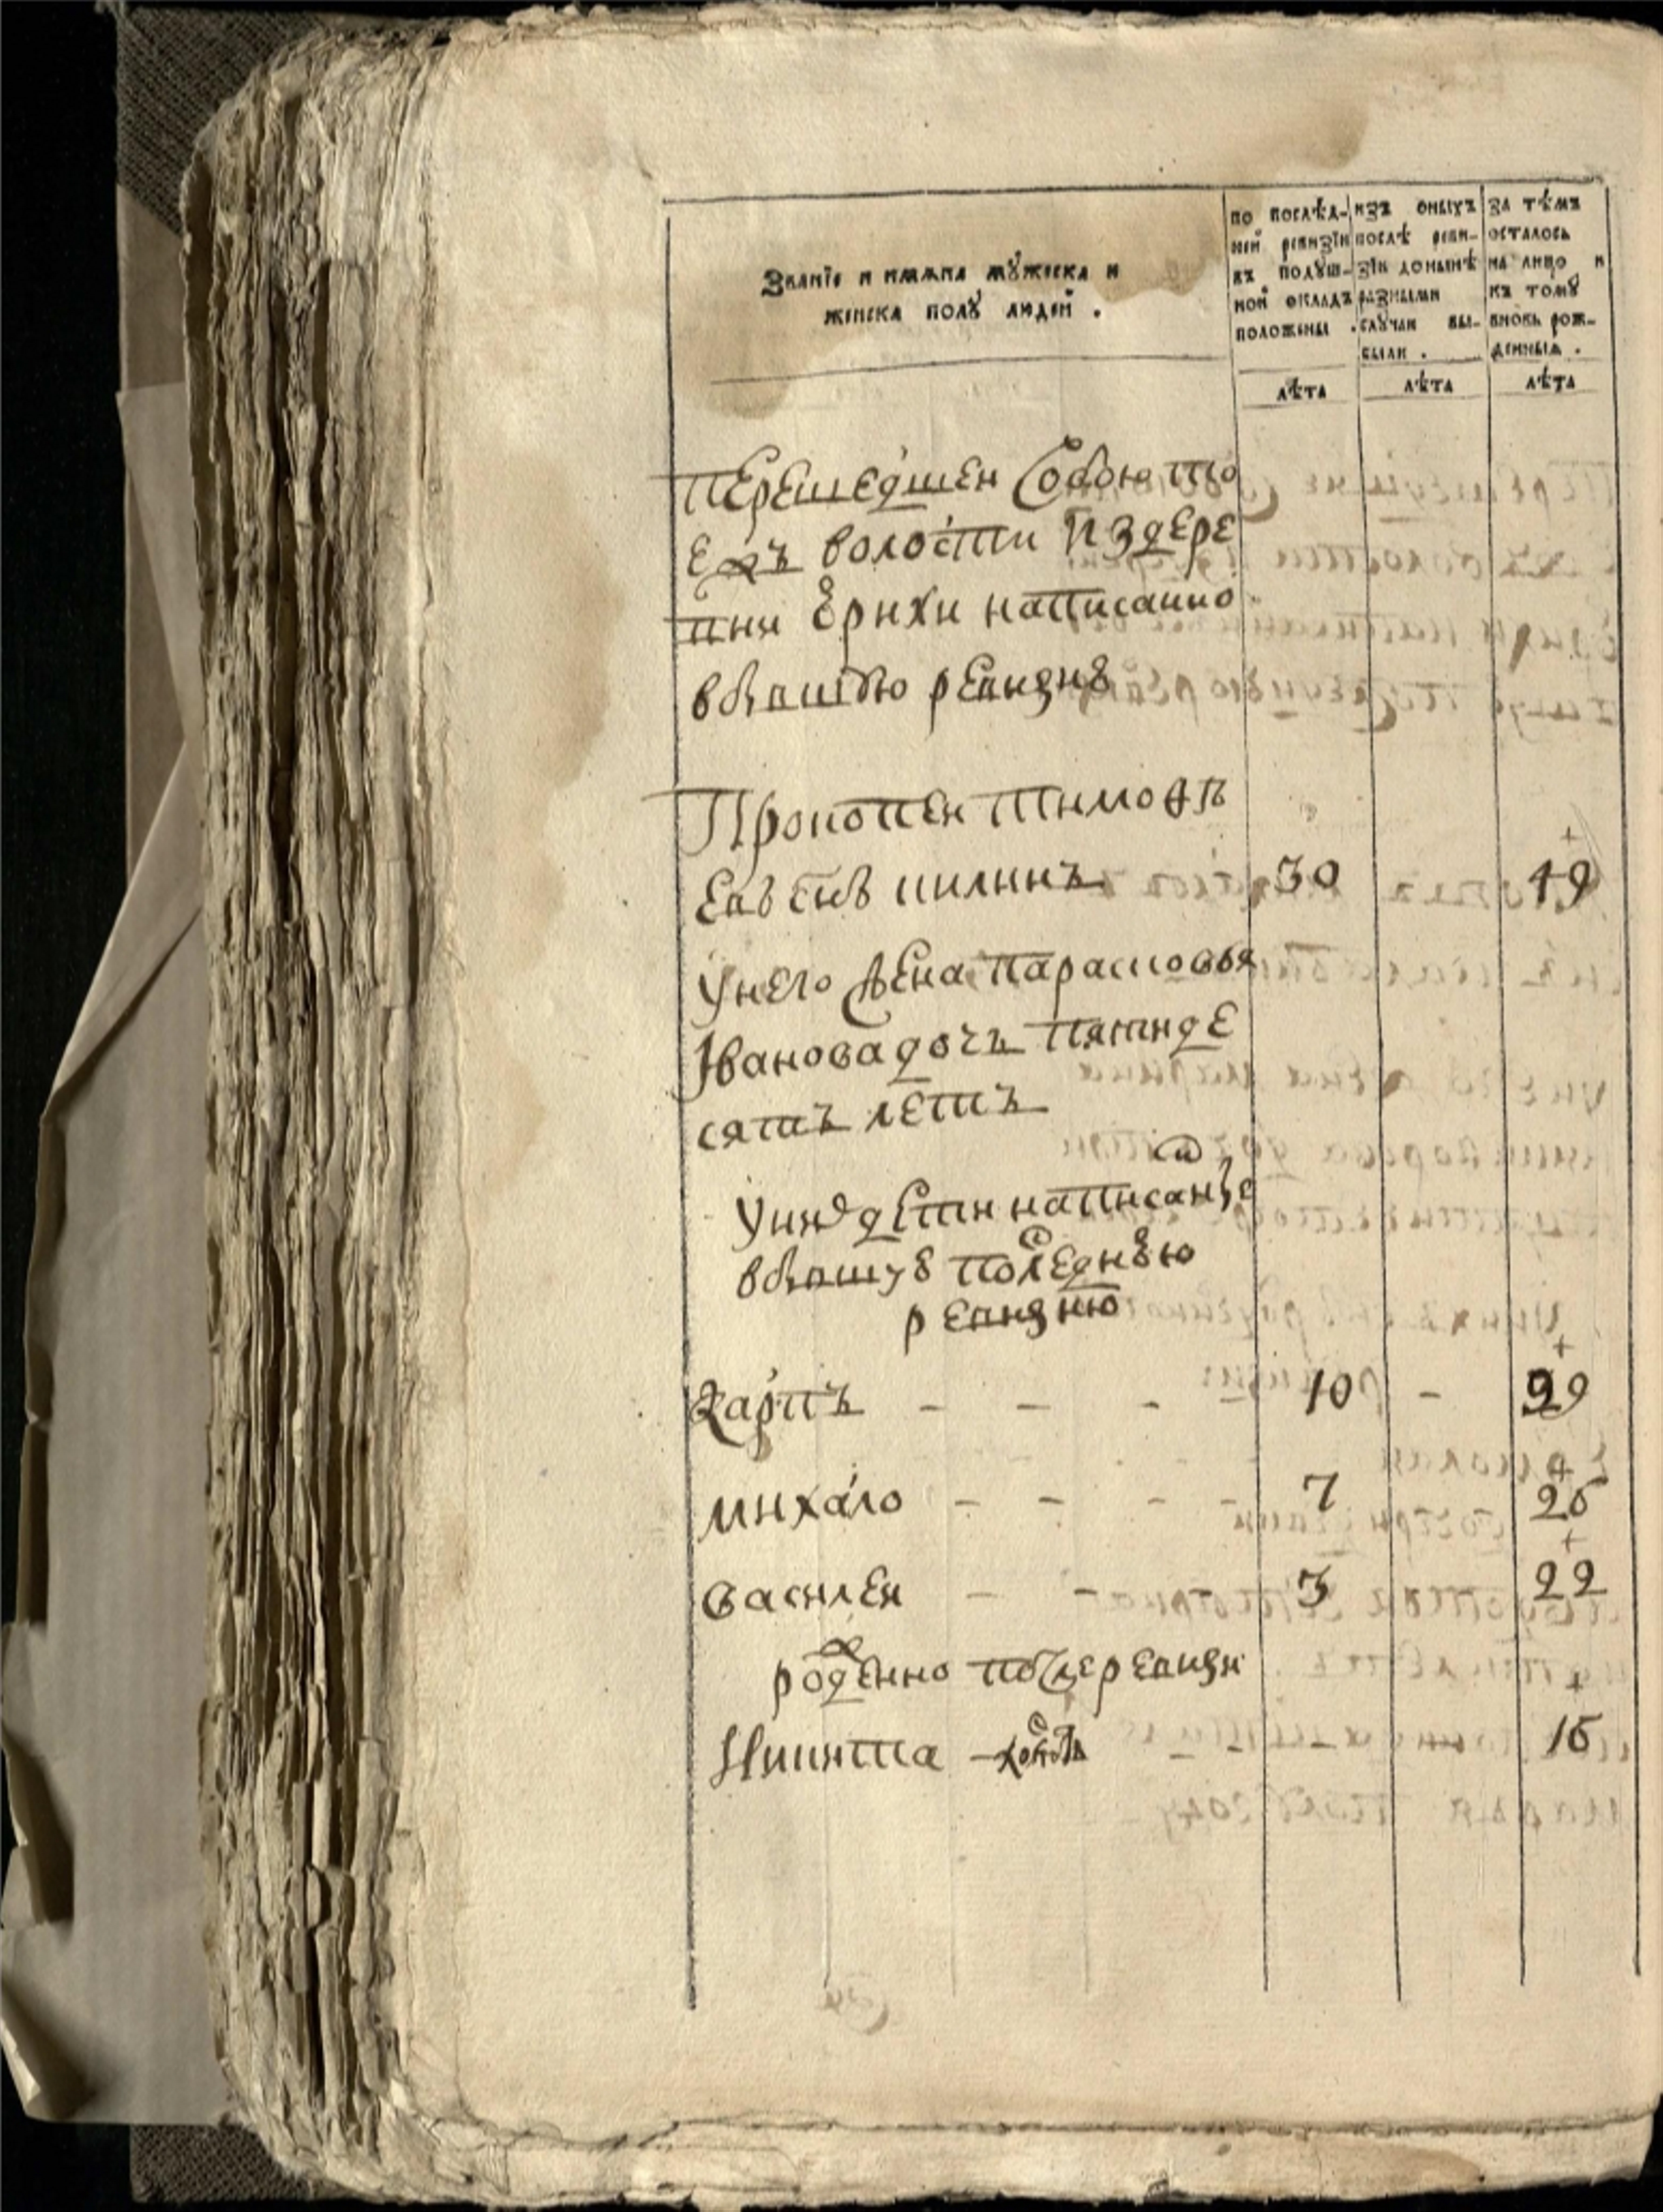 Званїе и имѧна мꙋжеска и
женска полꙋ людей .
по послѣд-
ней ревизїи
въ подꙋш-
ной окладъ
положены .
изъ оныхъ
послѣ реви-
зїи донынѣ
разными
слꙋчаи вы-
были .
за тѣмъ
осталось
на лицо и
къ томꙋ
вновь рож-
денныѧ .
лѣта лѣта лѣта
перешедшеи Собою тто
ежъ волости Издере
вни Ерихи написанно
вбывшꙋю ревизиꙋ
Прокопеи тимоѳѣ
евъ снъ килинъ 30 49
Унего жена парасковья
Iванова дочь пятиде
сятъ летъ
Уних дети написаные
вбывшуꙋ последнꙋю
ревизию
Карпъ - - - 10 - 29
михаило - - - - 7 26
василеи - - 3 22
рожденно после ревизи
Никита - 16